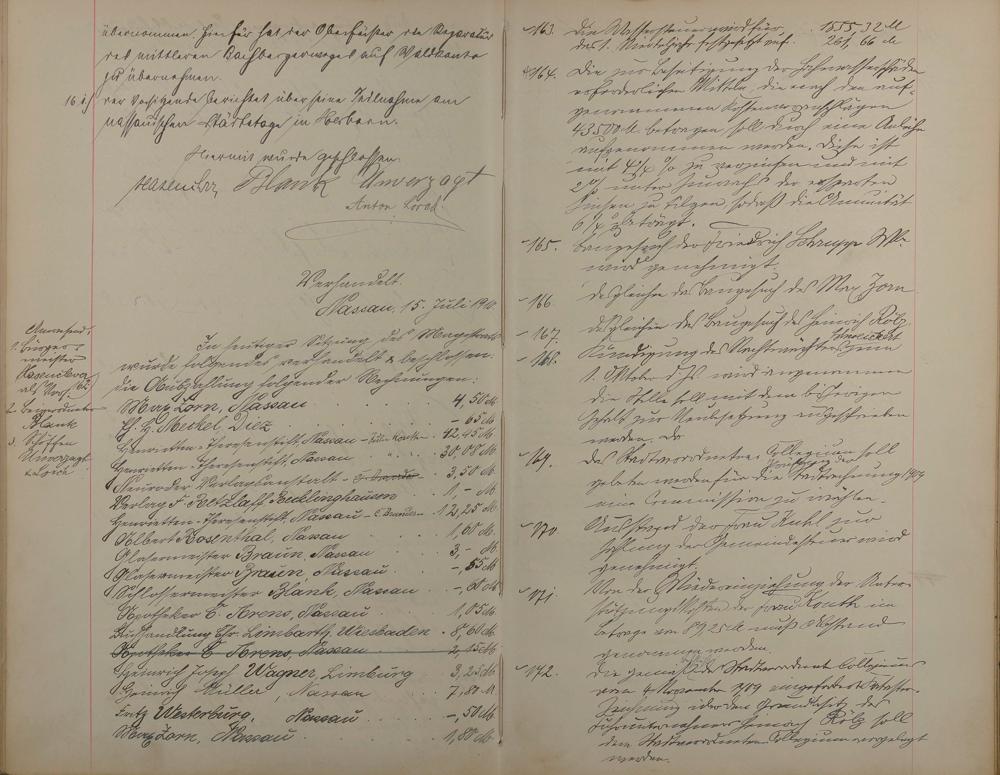 übernommen. Hierfür hat der Oberförster die Reparatur
des mittleren Bachbergerweges auf Waldkonto
zu übernehmen.
16 c/ Der Vorsitzende berichtet über seine Teilnahme am
nassauischen Städtetage in Herborn.
Hiermit wurde geschlossen.
Hasenclever Blank Unverzagt
Anton
Verhandelt.
Nassau, 15. Juli 1910
Anwesend:
1. Bürger-
meister
Hasenclever
als Vors.
2. Beigeordneter
Blank
3. Schöffen
Unverzagt
In heutiger Sitzung des Magistrats
wurde folgendes verhandelt & beschlossen:
die Auszahlung folgender Rechnungen:
Max Zorn, Nassau 4,50 M
H. G. Meckel Diez -65 M
Henrietten-Theresenstift, Nassau 42,45 M
Henrietten-Theresenstift, Nassau 30,08 M
Neuroder Verlagsanstalt 3,50 M
Verlag F. Petzlaff Recklinghausen 11,- M
Henrietten-Theresenstift, Nassau 12,25 M
Albert Rosenthal, Nassau 1,60 M
Glasermeister Braun, Nassau 3,- M
Glasermeister Braun, Nassau -,55 M
Schlossermeister Blank, Nassau
Apotheker E. Arens, Nassau 1,05 M
Buchhandlung Chr. Limbarth, Wiesbaden 8,60 M
Apotheker E. Arens, Nassau
Heinrich Josef Wagner, Limburg 3,25 M
Heinrich Müller, Nassau 7,80 M
Fritz Westerburg, Nassau -,50 M
Max Zorn, Nassau 1,80 M
163. Die Wassersteuer wird für 1555,32 M
des 1. Vierteljahr festgesetzt auf 261,66 M
164. Die zur Beseitigung der Hochwasserschäden
erforderlichen Mittel, die nach den auf-
genommenen Kostenvoranschlägen
43500 M. betragen soll durch eine Anleihe
aufgenommen werden. Diese ist
mit 4 % zu verzinsen und mit
2 % unter Zuwachs der ersparten
Zinsen zu tilgen, sodaß die Annuität
6 % beträgt.
165. Baugesuch der Friedrich Schrupp
wird genehmigt.
166. desgleichen das Baugesuch des Max Zorn
167. desgleichen das Baugesuch des Heinrich Rölz
168. Kündigung des Nachtwächters Schweickert zum
1. Oktober d. Js. wird angenommen
die Stelle soll mit dem bisherigen
Gehalt zur Neubesetzung ausgeschrieben
werden.
169. Das Stadtverordneten-Collegium soll
gebeten werden für die Prüfung der Stadtrechnung 1909
eine Commission zu wählen.
170. Ausstand der Frau Kuhl zur
Zahlung der Gemeindesteuer wird
genehmigt.
171. Von der Wiedereinziehung der Unter-
stützungskosten der Frau Knuth im
Betrage von 89,25 M muß Abstand
genommen werden.
172. Die gemäß Stadtverordneten Collegium
vom 4 November 1909 eingeforderte
Zeichnung über den Grundbesitz des
Fuhrunternehmers Heinrich Rölz soll
dem Stadtverordneten Collegium vorgelegt
werden.